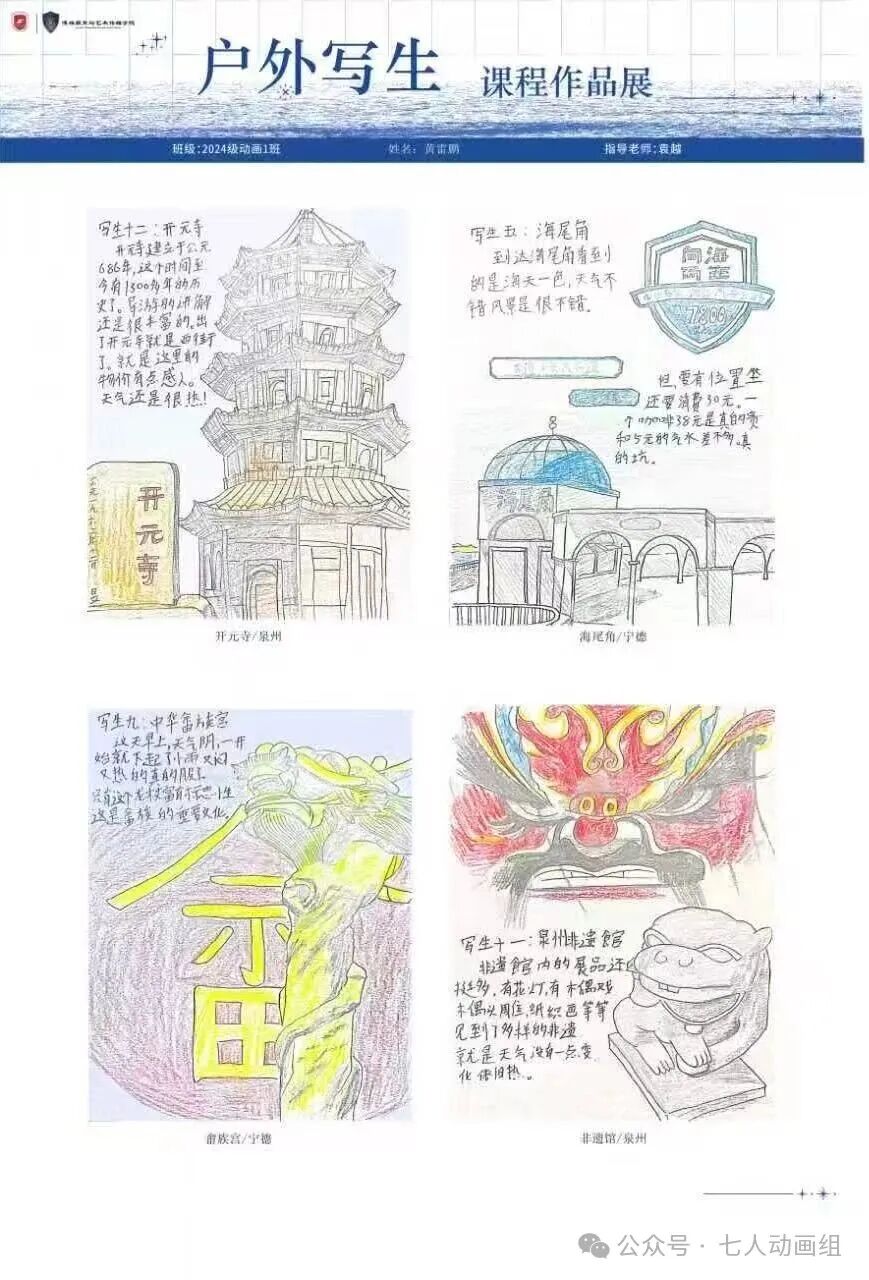 户外写生 课程作品展
班级:2024级动画1班 姓名:黄雷鹏 指导老师:袁越
写生十二:开元寺
开元寺建立于公元
686年,这个时间至
今有1300多年的历
史了。导游的讲解
还是很丰富的。出
了开元寺就是西街
了。就是这里的
物价有点感人。
天气还是很热!
开元寺
开元寺/泉州
写生五:海尾角
到达海尾角看到
的是海天一色,天气不
错风景是很不错。
向海
7800
但,要有位置坐
还要消费30元。一
个咖啡38元是真的贵
和5元的汽水差不多。真
的坑。
海尾角
海尾角/宁德
写生九:中华畲族宫
这天早上,天气阴,一开
始就下起了小雨又闷
又热的真的服了
只有这个龙杖富有
这是畲族的重要文化。
畲
畲族宫/宁德
写生十一:泉州非遗馆
非遗馆内的展品还
挺多,有花灯,有木偶戏
木偶头雕,纸织画等等
见到了多样的非遗
就是天气没有一点变
化依旧热。
非遗馆/泉州
公众号·七人动画组